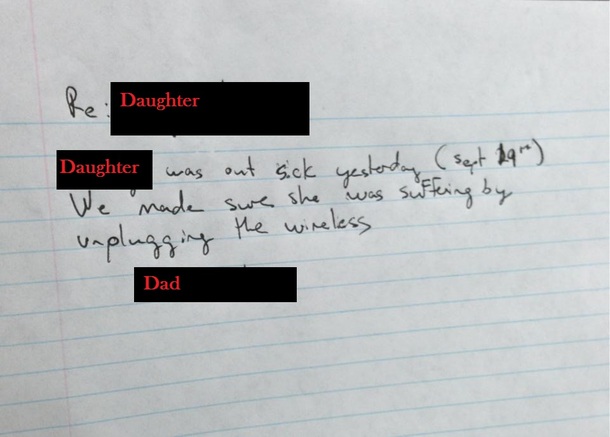 Re: Daughter
Daughter was out sick yesterday (sept 19th)
We made sure she was suffering by
unplugging the wireless
Dad